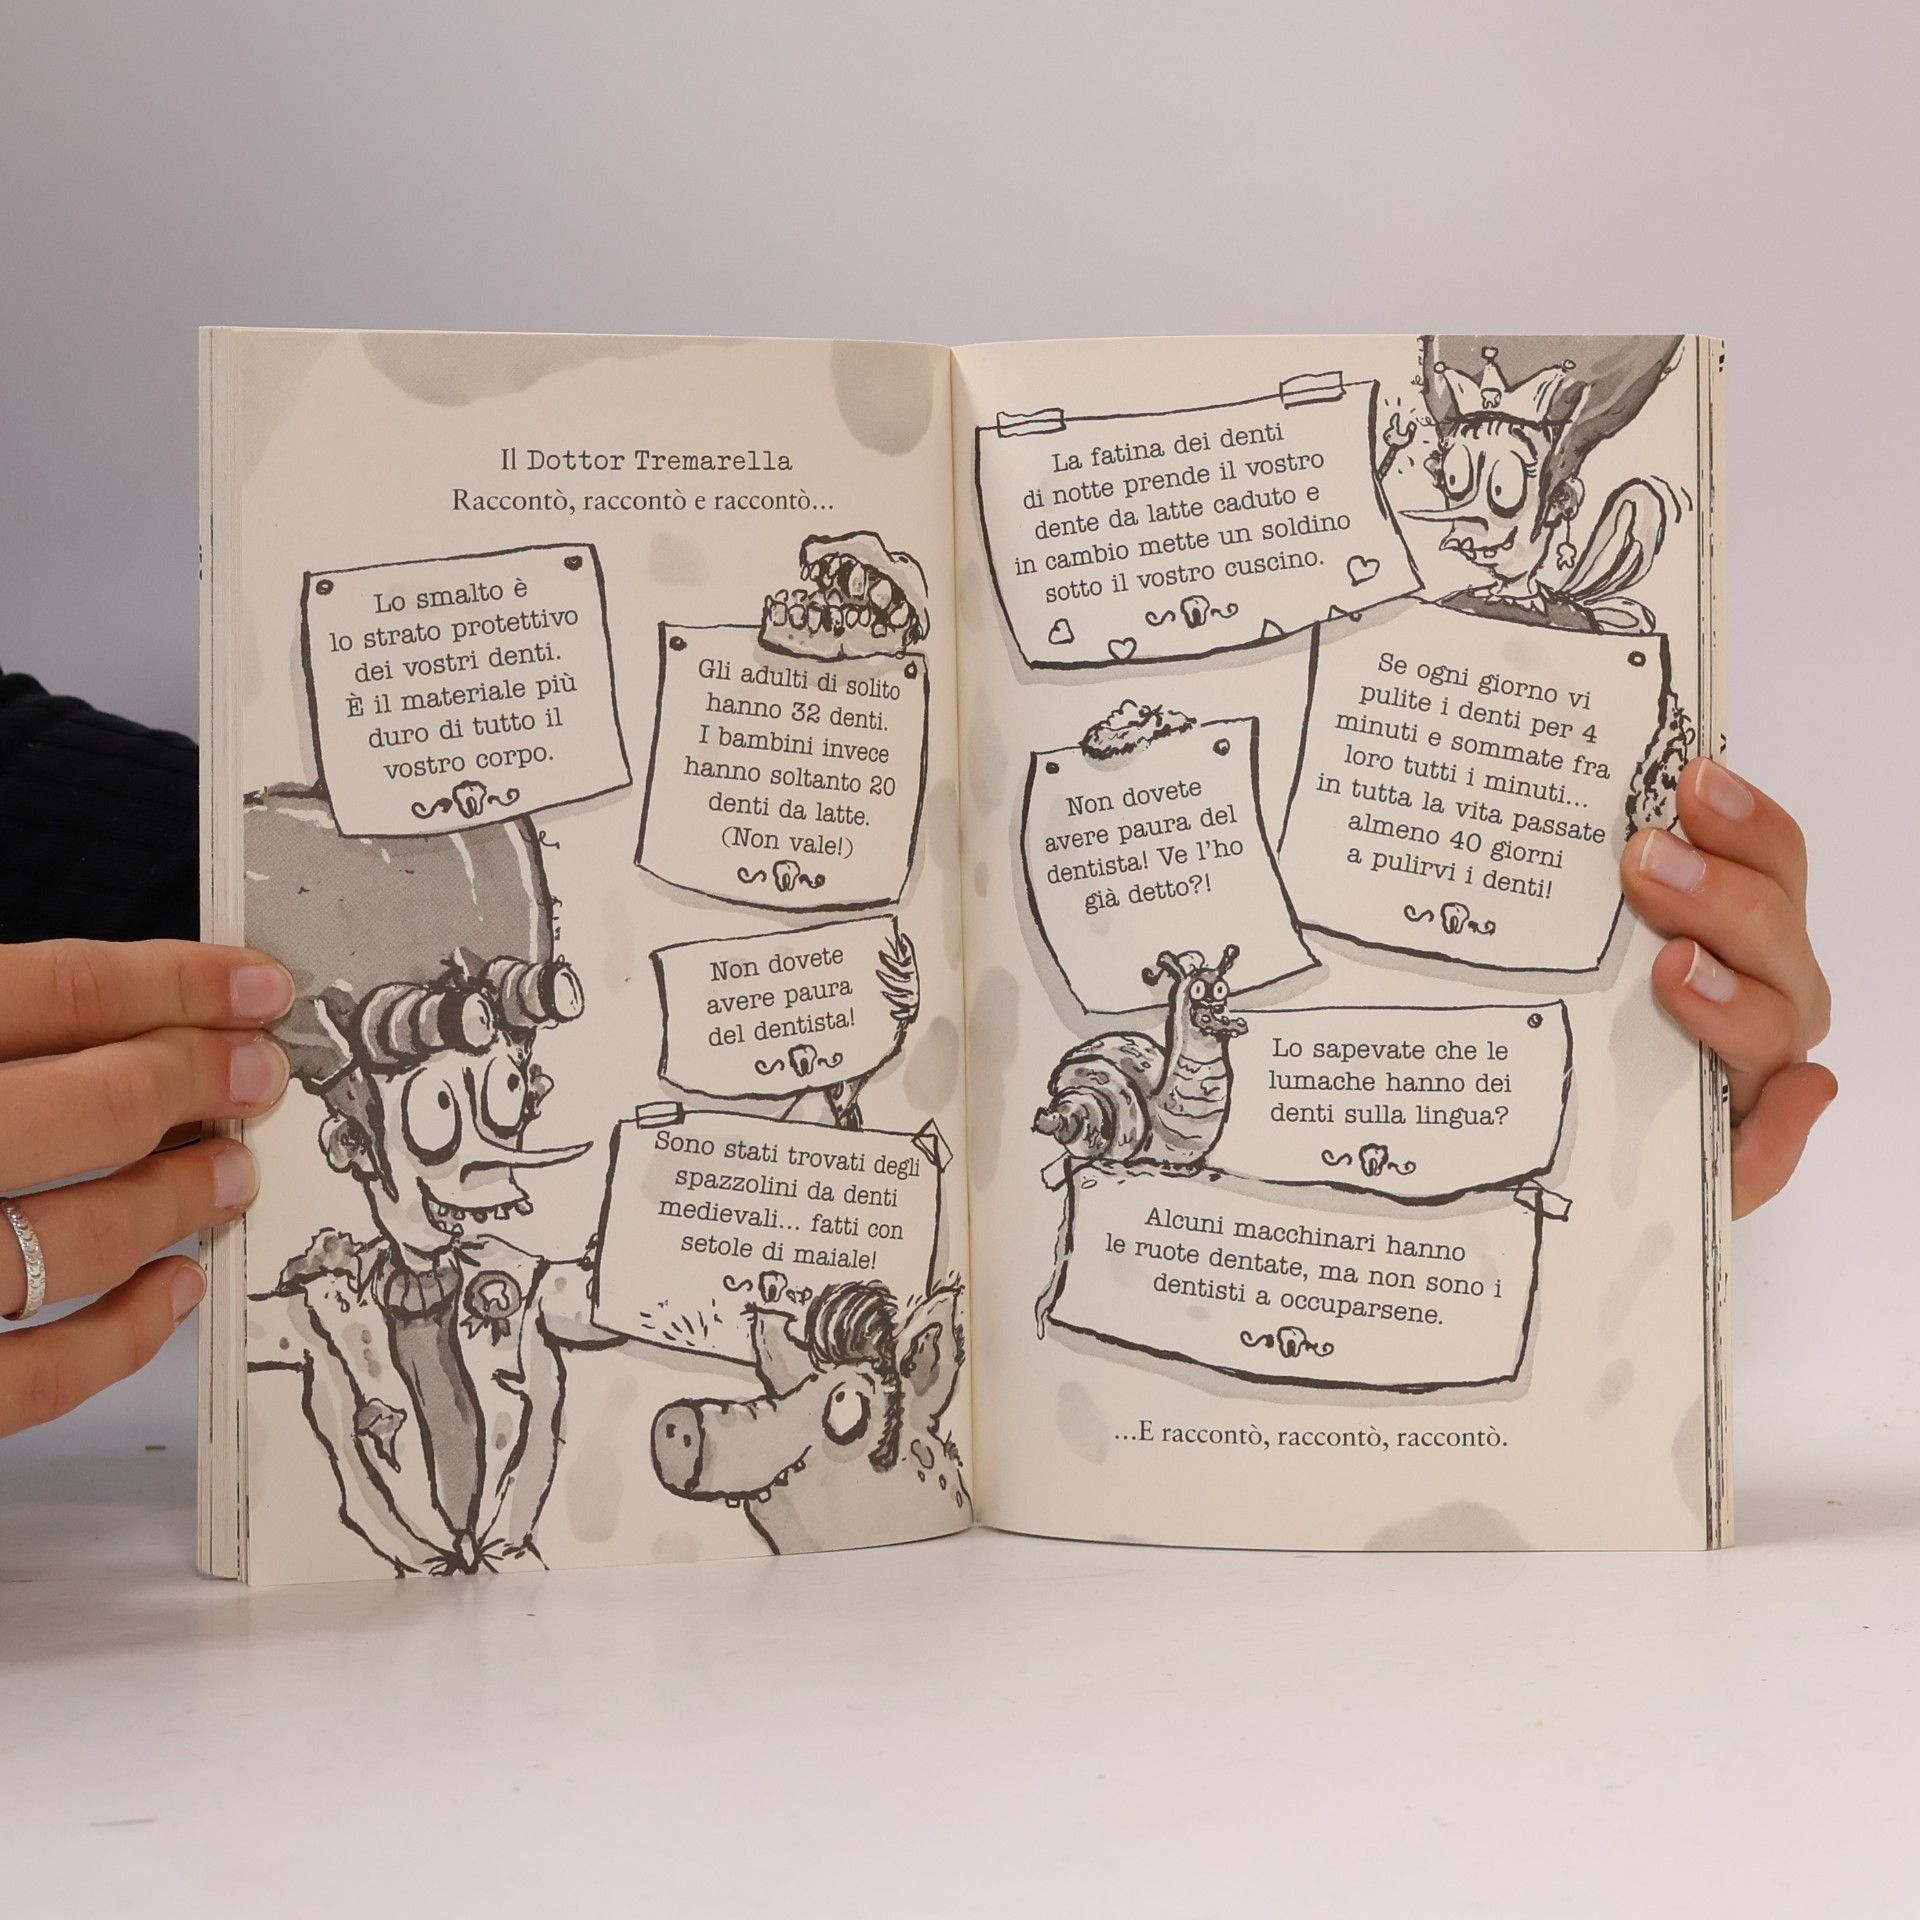 Il Dottor Tremarella
Raccontò, raccontò e raccontò...
Lo smalto è
lo strato protettivo
dei vostri denti.
È il materiale più
duro di tutto il
vostro corpo.
Gli adulti di solito
hanno 32 denti.
I bambini invece
hanno soltanto 20
denti da latte.
(Non vale!)
Non dovete
avere paura
del dentista!
Sono stati trovati degli
spazzolini da denti
medievali... fatti con
setole di maiale!
La fatina dei denti
di notte prende il vostro
dente da latte caduto e
in cambio mette un soldino
sotto il vostro cuscino.
Se ogni giorno vi
pulite i denti per 4
minuti e sommate fra
loro tutti i minuti...
in tutta la vita passate
almeno 40 giorni
a pulirvi i denti!
Non dovete
avere paura del
dentista! Ve l'ho
già detto?!
Lo sapevate che le
lumache hanno dei
denti sulla lingua?
Alcuni macchinari hanno
le ruote dentate, ma non sono i
dentisti a occuparsene.
...E raccontò, raccontò, raccontò.